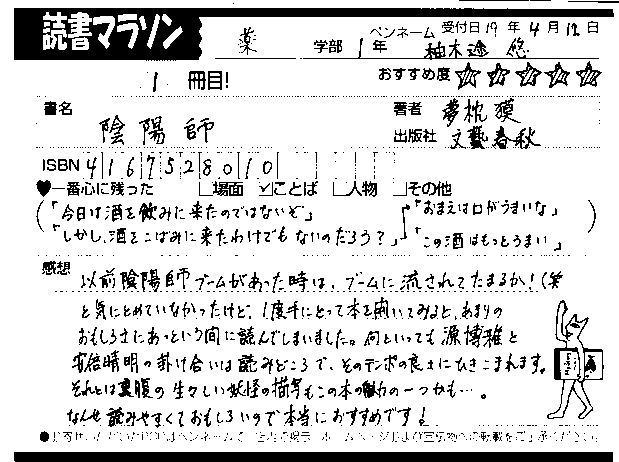 読書マラソン
薬 学部 1年 ペンネーム 柚木遊悠 受付日19年4月12日
1 冊目! おすすめ度 ☆☆☆☆☆
書名 陰陽師
著者 夢枕獏
出版社 文藝春秋
ISBN 4167528010
♥一番心に残った □場面 ☑ことば □人物 □その他
「今日は酒を飲みに来たのではないぞ」
「しかし、酒をこばみに来たわけでもないのだろう?」
「おまえは口がうまいな」
「この酒はもっとうまい」
感想 以前陰陽師ブームがあった時は、ブームに流されてたまるか!(笑
と気にとめていなかったけど、1度手にとって本を開いてみると、あまりの
おもしろさにあっという間に読んでしまいました。何といっても源博雅と
安倍晴明の掛け合いは読みどころで、そのテンポの良さにひきこまれます。
それとは裏腹の生々しい妖怪の描写もこの本の魅力の一つかも…。
なんせ読みやすくておもしろいので本当におすすめです!